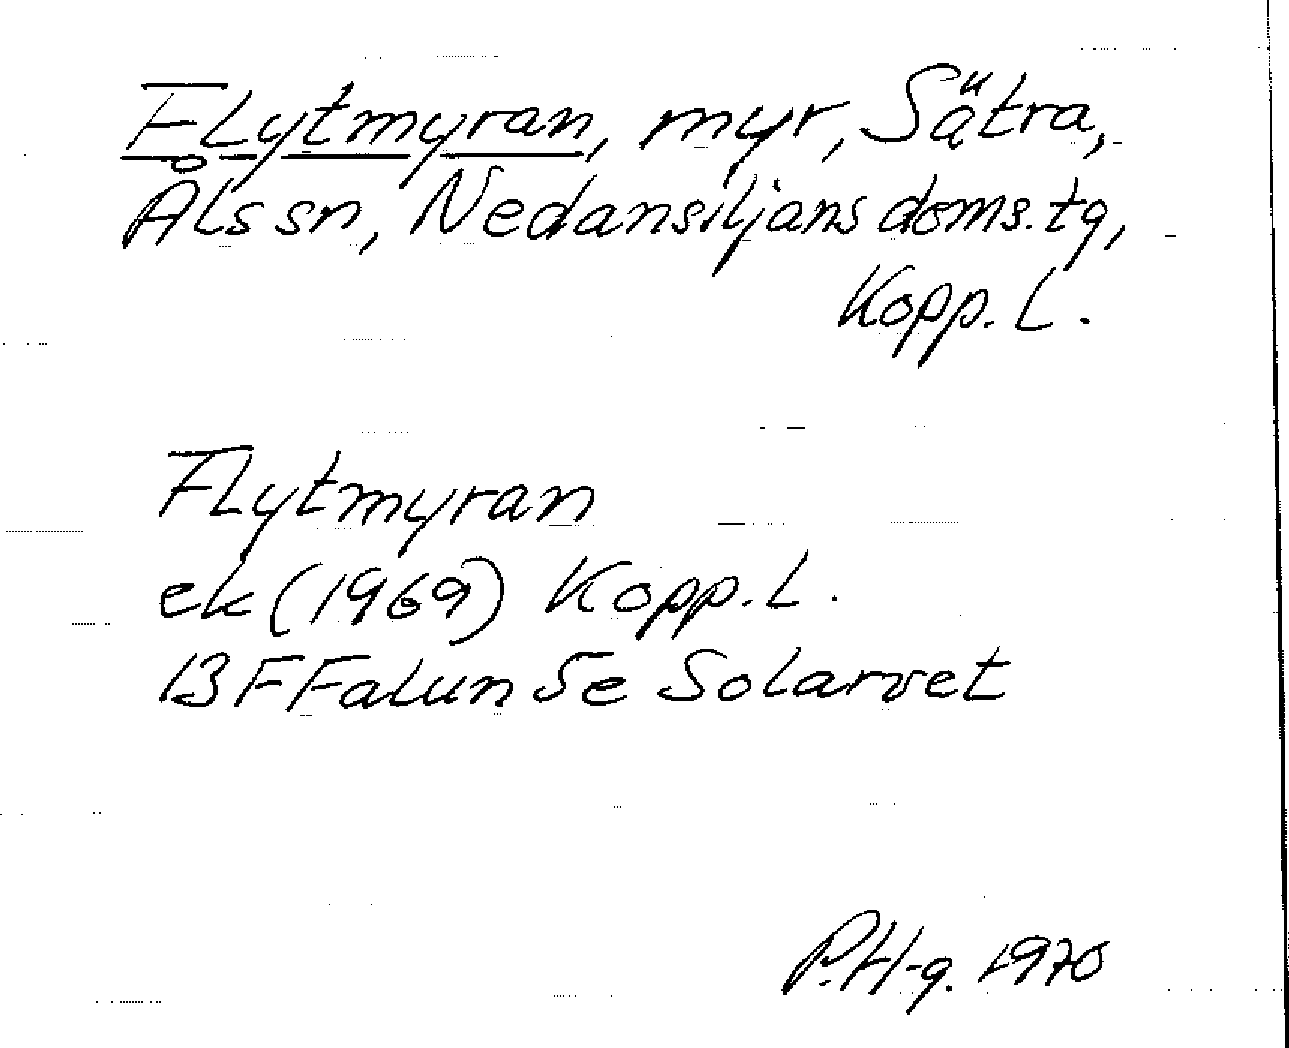 Flytmyran, myr, Sätra,
Åls sn, Nedansiljans doms. tg,
Kopp. L.
Flytmyran
ek (1969) Kopp. L.
13 F Falun 5e Solarvet
P.H-g. 1970